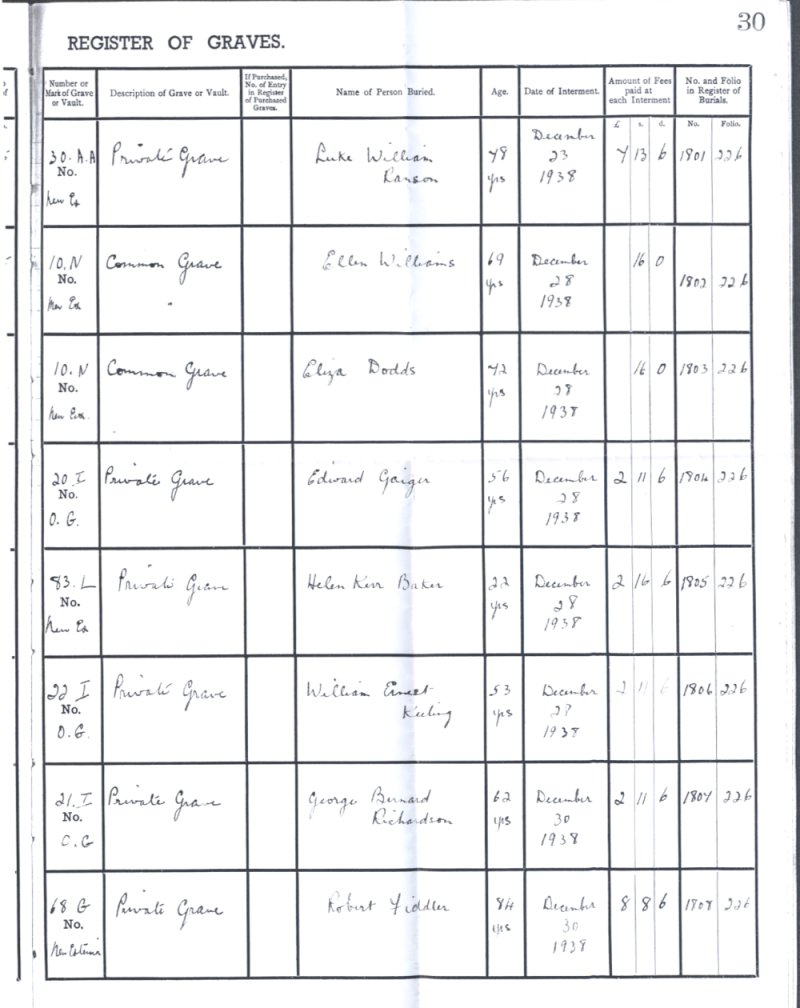 30
REGISTER OF GRAVES.
Number or Mark of Grave or Vault. Description of Grave or Vault. If Purchased, No. of Entry in Register of Purchased Graves. Name of Person Buried. Age. Date of Interment. Amount of Fees paid at each Interment No. and Folio in Register of Burials.
£ s. d. No. Folio.
December
30. A.A Private Grave Luke William 48 23 7 13 6 1801 226
No. Ranson yrs 1938
New Ex
10. N Common Grave Ellen Williams 69 December 16 0
No. yrs 28 1802 226
New Ex " 1938
10. N Common Grave Eliza Dodds 72 December 16 0 1803 226
No. yrs 28
New Ex. 1938
20 I Private Grave Edward Gaiger 56 December 2 11 6 1804 226
No. yrs 28
O. G. 1938
83. L Private Grave Helen Kerr Baker 22 December 2 16 6 1805 226
No. yrs 28
New Ex 1938
22 I Private Grave William Ernest 53 December 2 11 6 1806 226
No. Keeling yrs
O. G. 1938
21. I Private Grave George Bernard 62 December 2 11 6 1807 226
No. Richardson yrs 30
O. G 1938
68 G Private Grave Robert Fiddler 84 December 8 8 6 1808 226
No. yrs 30
New Extension 1938